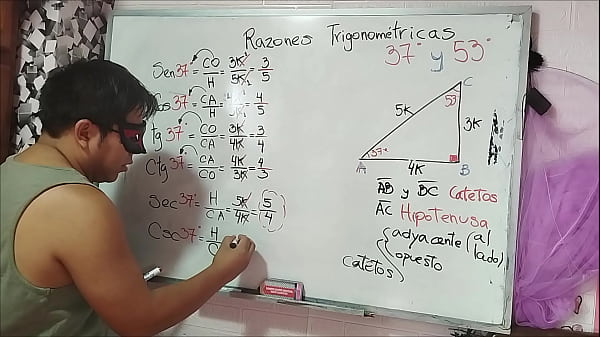 Razones Trigonométricas
37° y 53°
Sen37° = CO/H = 3K/5K = 3/5
Cos37° = CA/H = 4/5
tg 37° = CO/CA = 3K/4K = 3/4
Ctg37° = CA/CO = 4K/3K = 4/3
Sec37° = H/CA = 5K/4K = 5/4
Csc37° = H/C
C
53°
5K
3K
37°
A
4K
B
AB y BC Catetos
AC Hipotenusa
Catetos
adyacente (al lado)
opuesto